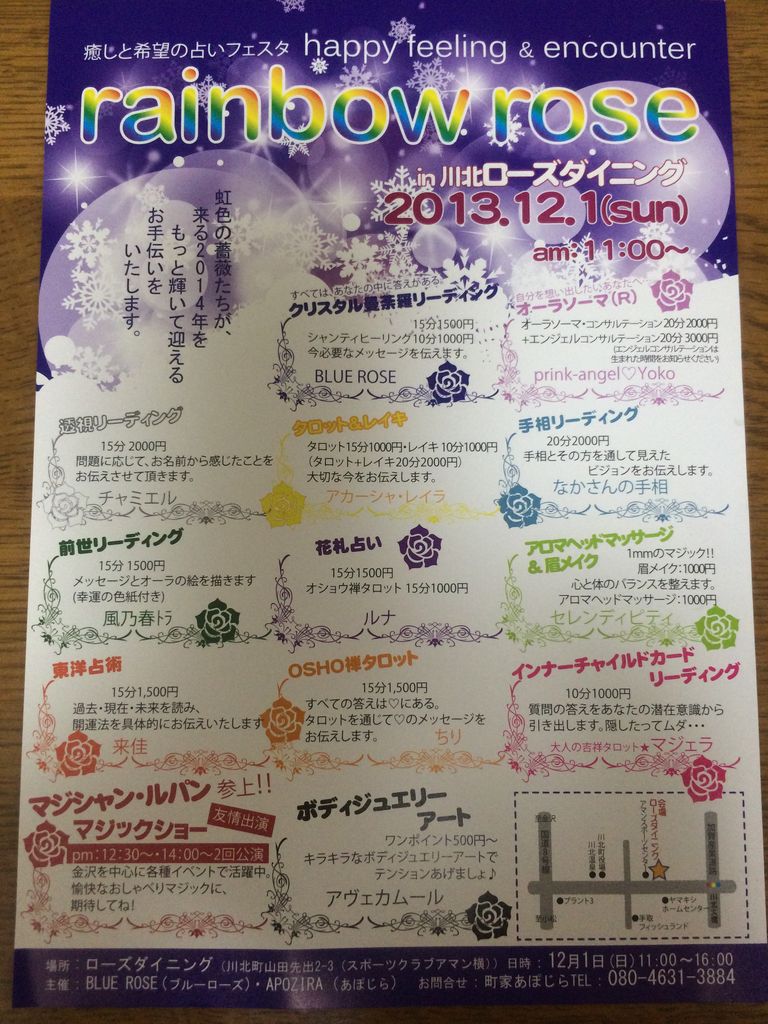 癒しと希望の占いフェスタ happy feeling & encounter
rainbow rose
in 川北ローズダイニング
2013.12.1(sun)
am:11:00～
虹色の薔薇たちが、
来る2014年を
もっと輝いて迎える
お手伝いを
いたします。
すべては、あなたの中に答えがある。
クリスタル曼荼羅リーディング
15分1500円
シャンティヒーリング10分1000円
今必要なメッセージを伝えます。
BLUE ROSE
自分を想い出したいあなたへ…
オーラソーマ(R)
オーラソーマ・コンサルテーション20分2000円
+エンジェルコンサルテーション20分 3000円
(エンジェルコンサルテーションは
生まれた時間をお知らせください)
prink-angel♡Yoko
透視リーディング
15分 2000円
問題に応じて、お名前から感じたことを
お伝えさせて頂きます。
チャミエル
タロット&レイキ
タロット15分1000円・レイキ 10分1000円
(タロット+レイキ20分2000円)
大切な今をお伝えします。
アカーシャ・レイラ
手相リーディング
20分2000円
手相とその方を通して見えた
ビジョンをお伝えします。
なかさんの手相
前世リーディング
15分 1500円
メッセージとオーラの絵を描きます
(幸運の色紙付き)
風乃春トラ
花札占い
15分1500円
オショウ禅タロット 15分1000円
ルナ
アロマヘッドマッサージ
&眉メイク
1mmのマジック!!
眉メイク:1000円
心と体のバランスを整えます。
アロマヘッドマッサージ:1000円
セレンディピティ
東洋占術
15分1,500円
過去・現在・未来を読み、
開運法を具体的にお伝えいたします
来佳
OSHO禅タロット
15分1,500円
すべての答えは♡にある。
タロットを通じて♡のメッセージを
お伝えします。
ちり
インナーチャイルドカード
リーディング
10分1000円
質問の答えをあなたの潜在意識から
引き出します。隠したってムダ・・・
大人の吉祥タロット★マジェラ
マジシャン・ルパン 参上!!
マジックショー 友情出演
pm:12:30～・14:00～2回公演
金沢を中心に各種イベントで活躍中。
愉快なおしゃべりマジックに、
期待してね!
ボディジュエリー
アート
ワンポイント500円～
キラキラなボディジュエリーアートで
テンションあげましょ♪
アヴェカムール
至金沢
国道8号線
至小松
川北町役場
川北温泉
会場
ローズダイニング
アマンスポーツセンター
加賀産業道路
プラント3
手取
フィッシュランド
ヤマキシ
ホームセンター
場所:ローズダイニング (川北町山田先出2-3 (スポーツクラブアマン横)) 日時:12月1日(日)11:00～16:00
主催:BLUE ROSE(ブルーローズ)・APOZIRA (あぽじら) お問合せ:町家あぽじらTEL:080-4631-3884